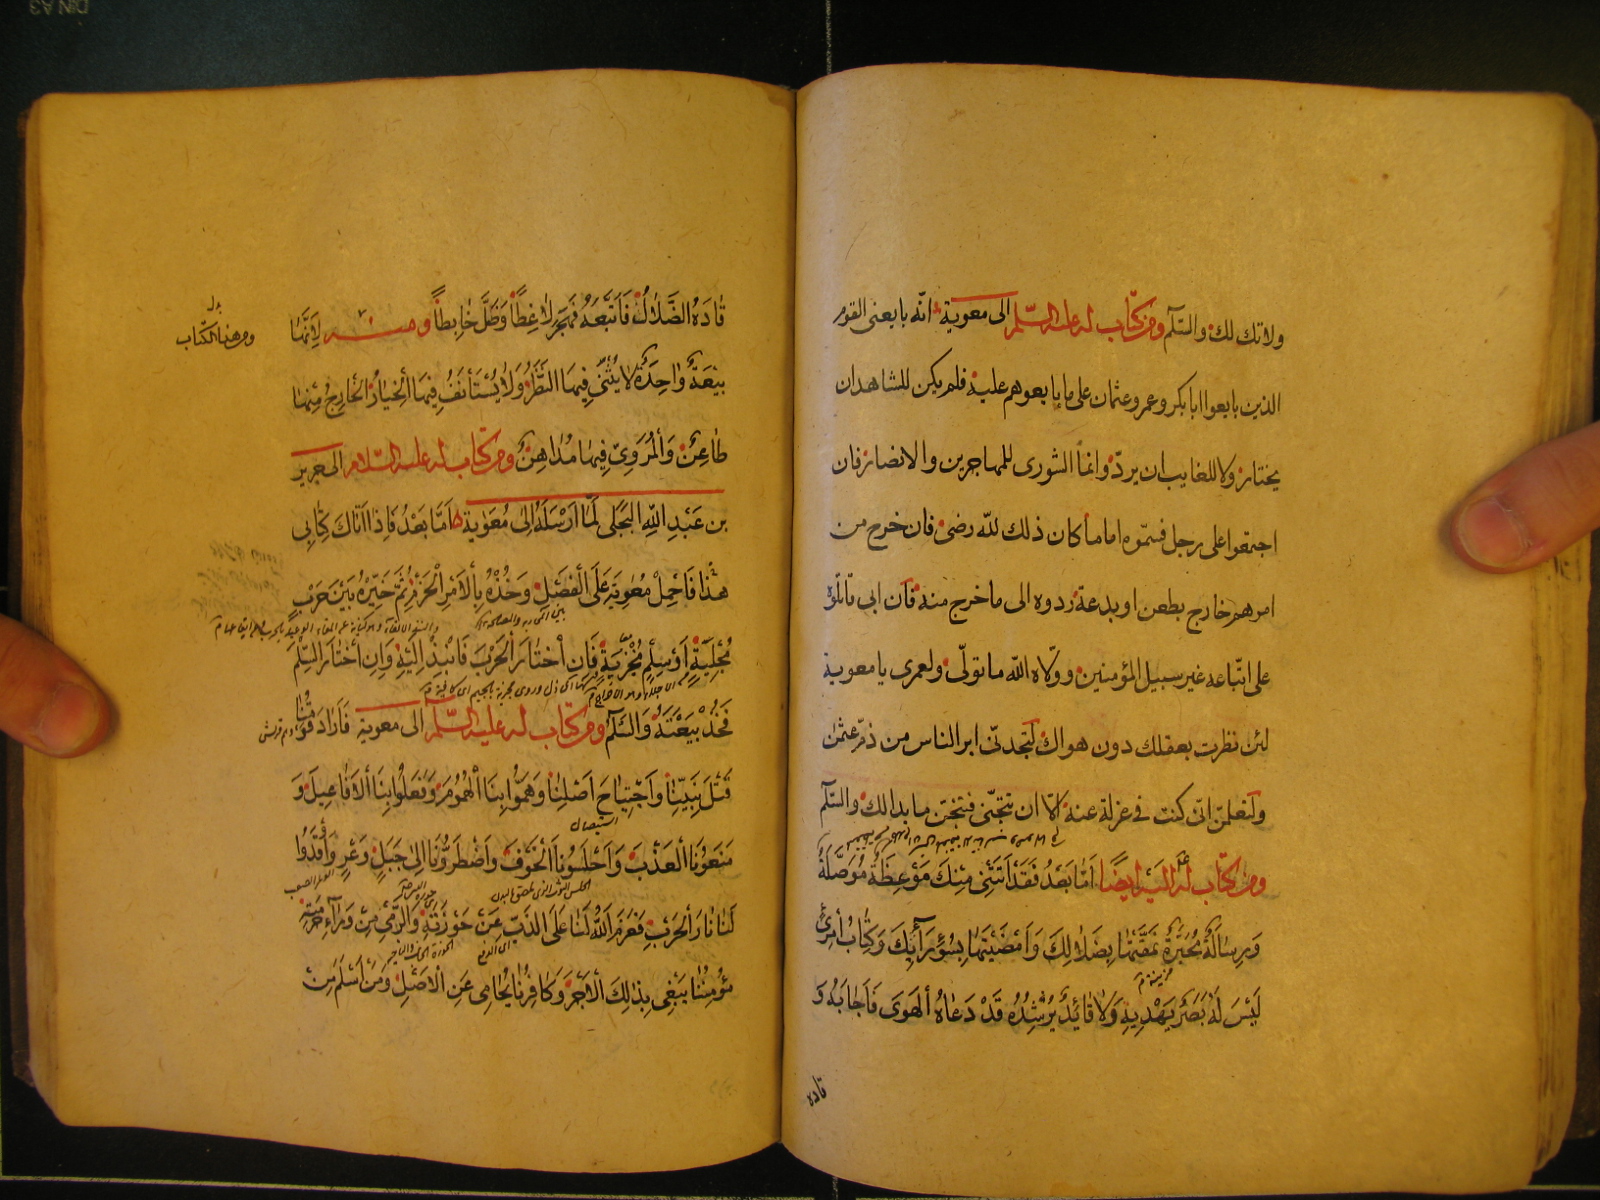 ولاتك لك والسّلم ومن كتاب له عليه السّلم الى معوية انّه بايعنى القوم
الذين بايعوا ابا بكر وعمر وعثمان على ما بايعوهم عليه فلم يكن للشاهد ان
يختار ولا للغايب ان يردّ وانما الشورى للمهاجرين والانصار فان
اجتمعوا على رجل فسمّوه اماما كان ذلك لله رضى فان خرج من
امرهم خارج بطعن او بدعة ردوه الى ما خرج منه فان ابى قاتلوه
على اتّباعه غير سبيل المؤمنين وولاه الله ما تولّى ولعمرى يا معوية
لئن نظرت بعقلك دون هواك لتجدنّى ابرا الناس من دم عثمن
ولتعلمنّ انى كنت فى عزلة عنه الّا ان تتجنّى فتجنّ ما بدا لك والسّلم
ومن كتاب له اليه ايضًا اَمَّا بَعْدُ فَقَدْ اَتَتْنى مِنْكَ مَوْعِظَةٌ مُوَصَّلَةٌ
وَرِسَالَةٌ مُحَبَّرَةٌ نَمَّقْتَهَا بِضَلَالِكَ وَاَمْضَيْتَهَا بِسُوءِ رَأْيِكَ وَكِتَابُ امْرِئٍ
لَيْسَ لَهُ بَصَرٌ يَهْدِيهِ وَلَا قَائِدٌ يُرْشِدُهُ قَدْ دَعَاهُ الْهَوَى فَاَجَابَهُ وَ
قاده
قَادَهُ الضَّلَالُ فَاتَّبَعَهُ فَهَجَرَ لَاغِطًا وَضَلَّ خَابِطًا ومنه لِاَنَّهَا
ومن هذا الكتاب
بَيْعَةٌ وَاحِدَةٌ لَا يُثَنَّى فِيهَا النَّظَرُ وَلَا يُسْتَأْنَفُ فِيهَا الْخِيَارُ الْخَارِجُ مِنْهَا
طَاعِنٌ وَالْمُرَوِّى فِيهَا مُدَاهِنٌ ومن كتاب له عليه السلام الى جرير
بن عَبْدِ اللهِ الْبَجَلِى لَمَّا اَرْسَلَهُ اِلى مُعَوِيَة اَمَّا بَعْدُ فَاِذَا اَتَاكَ كِتَابِى
هذَا فَاحْمِلْ مُعَوِيَةَ عَلَى الْفَصْلِ وَخُذْهُ بِالْاَمْرِ الْجَزْمِ ثُمَّ خَيِّرْهُ بَيْنَ حَرْبٍ
مُجْلِيَةٍ اَوْ سِلْمٍ مُخْزِيَةٍ فَاِنِ اخْتَارَ الْحَرْبَ فَانْبِذْ اِلَيْهِ وَاِنِ اخْتَارَ السِّلْمَ
فَخُذْ بَيْعَتَهُ وَالسَّلَمُ ومن كتاب له عليه السّلم الى معوية فَاَرَادَ قَوْمُنَا
قَتْلَ نَبِيِّنَا وَاجْتِيَاحَ اَصْلِنَا وَهَمُّوا بِنَا الْهُمُومَ وَفَعَلُوا بِنَا الْاَفَاعِيلَ وَ
استيصال
مَنَعُونَا الْعَذْبَ وَاَحْلَسُونَا الْخَوْفَ وَاضْطَرُّونَا اِلى جَبَلٍ وَعْرٍ وَاَوْقَدُوا
لَنَا نَارَ الْحَرْبِ فَعَزَمَ اللهُ لَنَا عَلَى الذَّبِّ عَنْ حَوْزَتِهِ وَالرَّمْىِ مِنْ وَرَاءِ حُرْمَتِهِ
مُؤْمِنُنَا يَبْغِى بِذَلِكَ الْاَجْرَ وَكَافِرُنَا يُحَامِى عَنِ الْاَصْلِ وَمَنْ اَسْلَمَ مِنْ